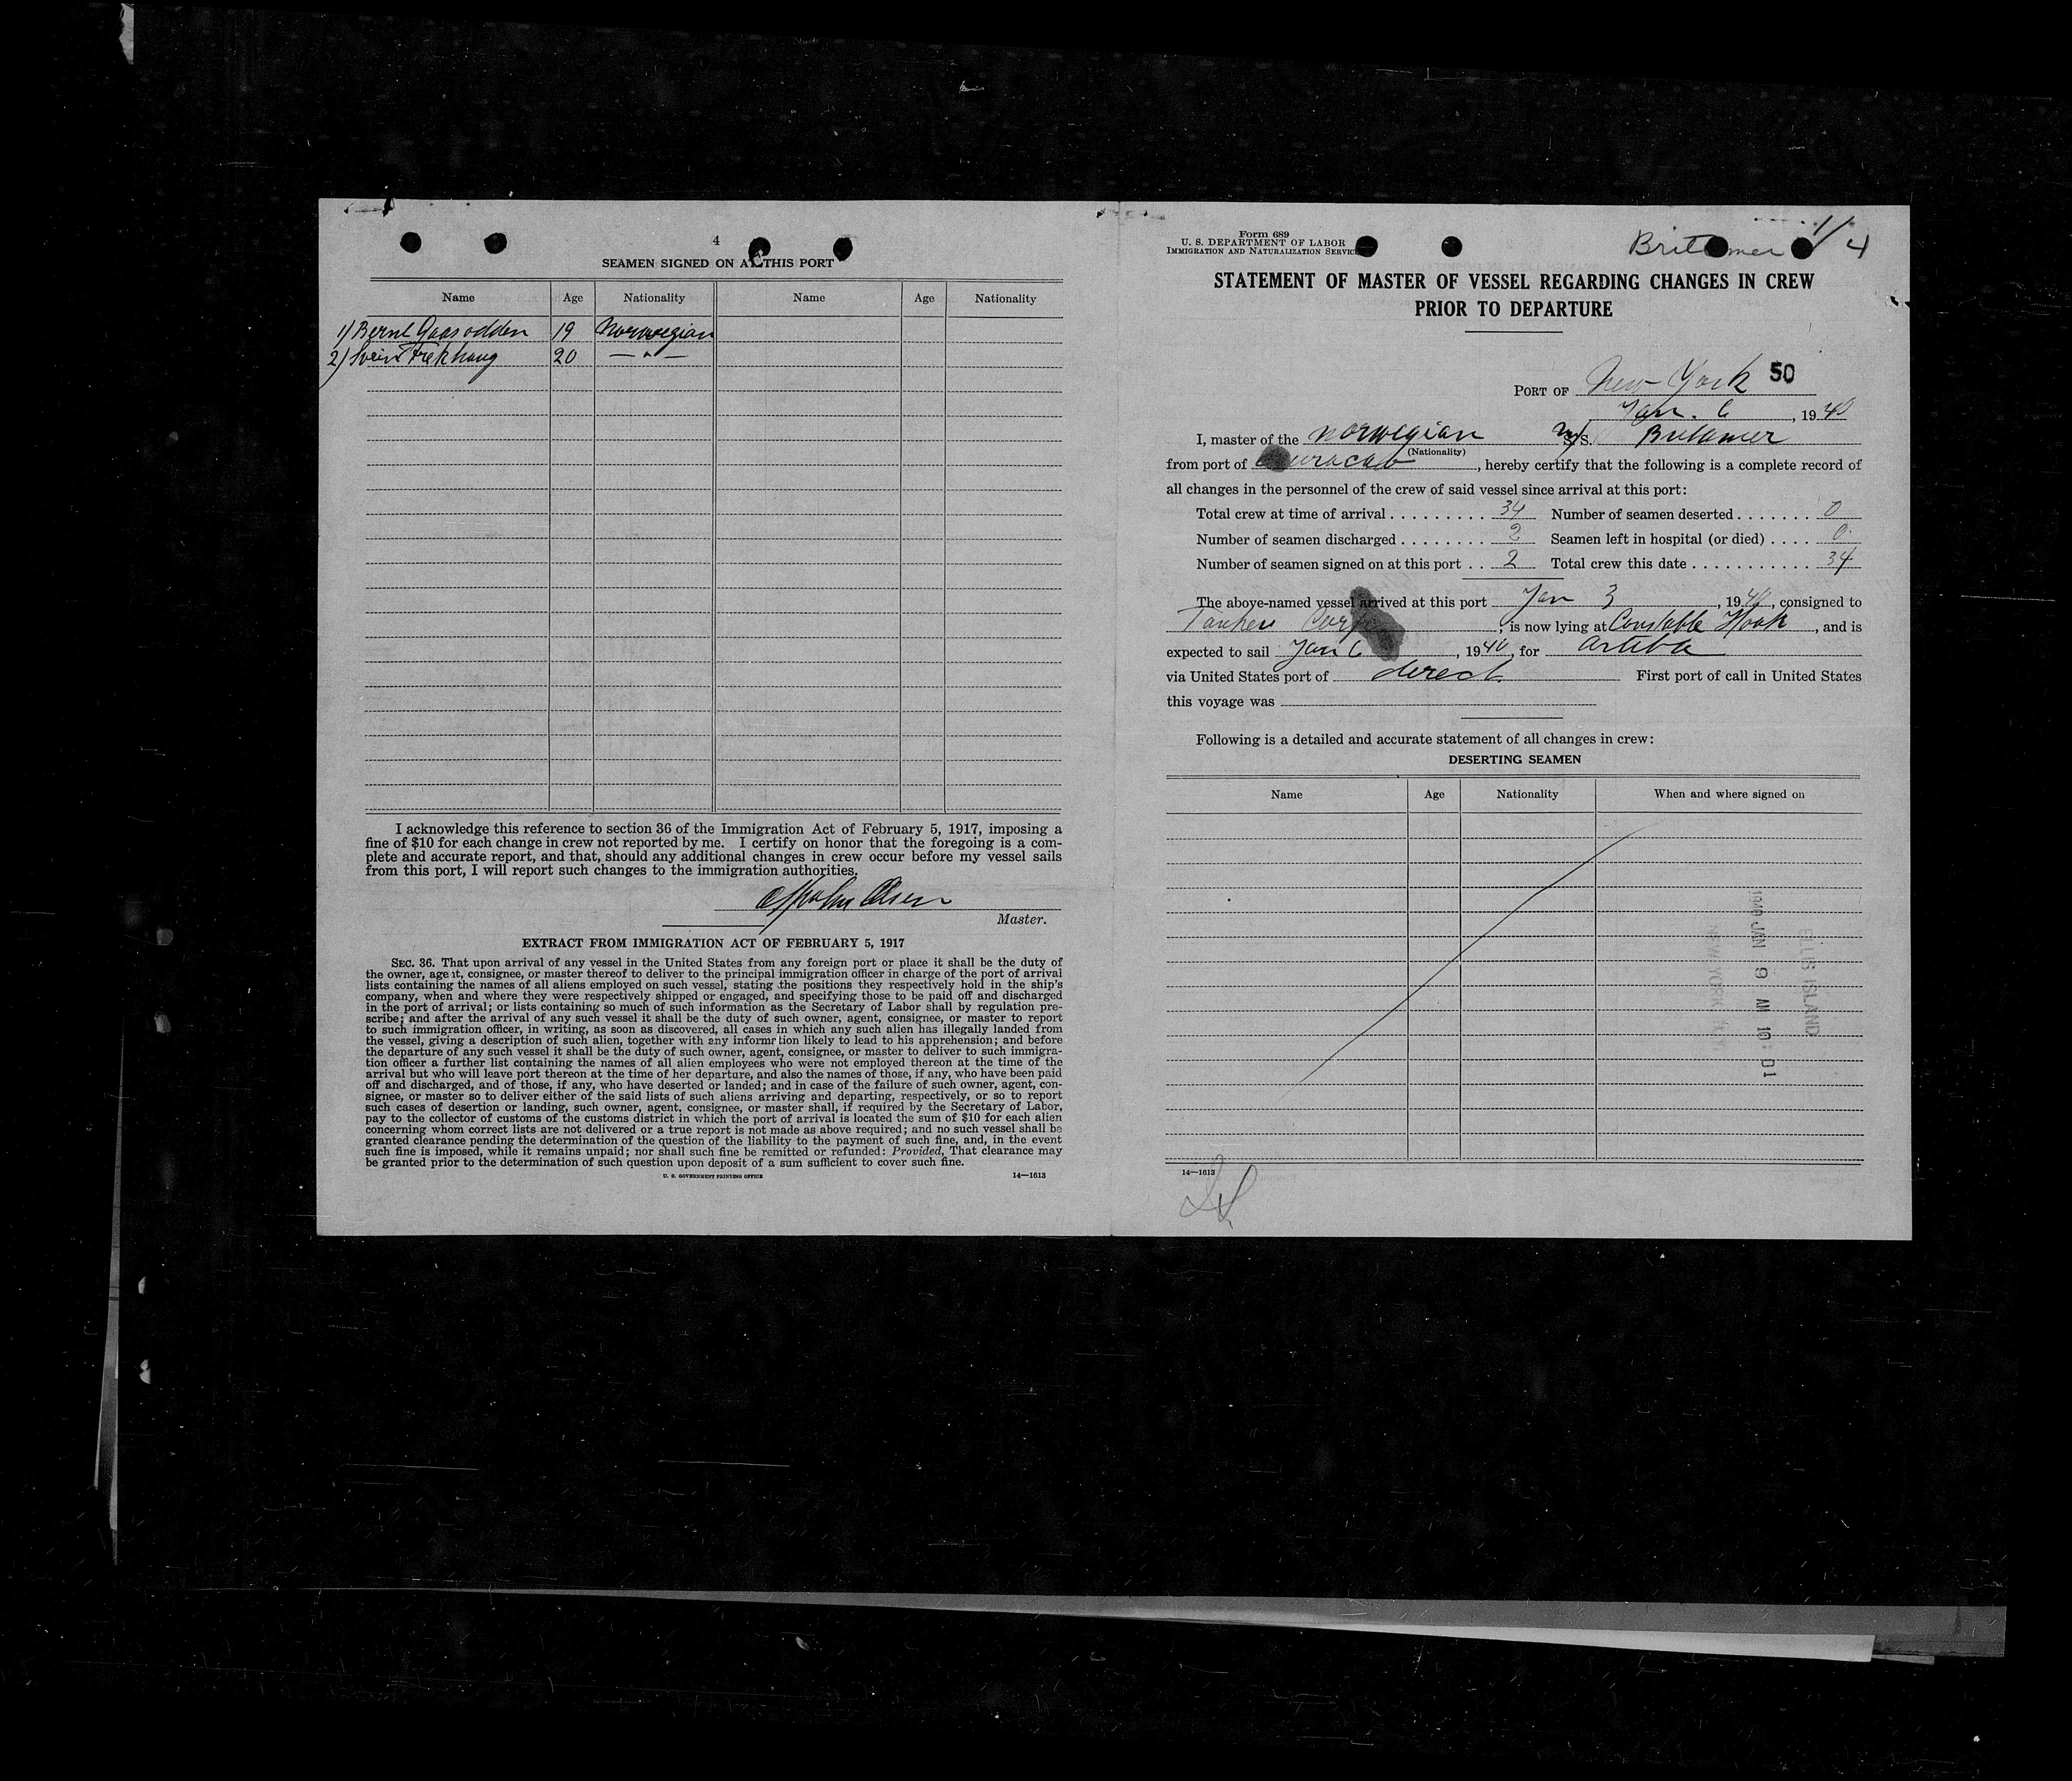 4
SEAMEN SIGNED ON AT THIS PORT
Name Age Nationality Name Age Nationality
1) Bernt Gaasodden 19 Norwegian
2) Svein Frekhaug 20 — " —
I acknowledge this reference to section 36 of the Immigration Act of February 5, 1917, imposing a
fine of $10 for each change in crew not reported by me. I certify on honor that the foregoing is a com-
plete and accurate report, and that, should any additional changes in crew occur before my vessel sails
from this port, I will report such changes to the immigration authorities.
Olsen
Master.
EXTRACT FROM IMMIGRATION ACT OF FEBRUARY 5, 1917
SEC. 36. That upon arrival of any vessel in the United States from any foreign port or place it shall be the duty of
the owner, agent, consignee, or master thereof to deliver to the principal immigration officer in charge of the port of arrival
lists containing the names of all aliens employed on such vessel, stating the positions they respectively hold in the ship's
company, when and where they were respectively shipped or engaged, and specifying those to be paid off and discharged
in the port of arrival; or lists containing so much of such information as the Secretary of Labor shall by regulation pre-
scribe; and after the arrival of any such vessel it shall be the duty of such owner, agent, consignee, or master to report
to such immigration officer, in writing, as soon as discovered, all cases in which any such alien has illegally landed from
the vessel, giving a description of such alien, together with any information likely to lead to his apprehension; and before
the departure of any such vessel it shall be the duty of such owner, agent, consignee, or master to deliver to such immigra-
tion officer a further list containing the names of all alien employees who were not employed thereon at the time of the
arrival but who will leave port thereon at the time of her departure, and also the names of those, if any, who have been paid
off and discharged, and of those, if any, who have deserted or landed; and in case of the failure of such owner, agent, con-
signee, or master so to deliver either of the said lists of such aliens arriving and departing, respectively, or so to report
such cases of desertion or landing, such owner, agent, consignee, or master shall, if required by the Secretary of Labor,
pay to the collector of customs of the customs district in which the port of arrival is located the sum of $10 for each alien
concerning whom correct lists are not delivered or a true report is not made as above required; and no such vessel shall be
granted clearance pending the determination of the question of the liability to the payment of such fine, and, in the event
such fine is imposed, while it remains unpaid; nor shall such fine be remitted or refunded: Provided, That clearance may
be granted prior to the determination of such question upon deposit of a sum sufficient to cover such fine.
U. S. GOVERNMENT PRINTING OFFICE 14—1613
Form 689
U. S. DEPARTMENT OF LABOR
IMMIGRATION AND NATURALIZATION SERVICE
Britamer 1/4
STATEMENT OF MASTER OF VESSEL REGARDING CHANGES IN CREW
PRIOR TO DEPARTURE
PORT OF New York 50
Jan. 6, 1940
I, master of the Norwegian M/S. Britamer
(Nationality)
from port of Curacao, hereby certify that the following is a complete record of
all changes in the personnel of the crew of said vessel since arrival at this port:
Total crew at time of arrival . . . . . . . . . 34 Number of seamen deserted . . . . . . . 0
Number of seamen discharged . . . . . . . . 2 Seamen left in hospital (or died) . . . . 0
Number of seamen signed on at this port . . 2 Total crew this date . . . . . . . . . . . 34
The above-named vessel arrived at this port Jan 3, 1940, consigned to
Tankers Corp, is now lying at Constable Hook, and is
expected to sail Jan 6, 1940, for Aruba
via United States port of direct First port of call in United States
this voyage was
Following is a detailed and accurate statement of all changes in crew:
DESERTING SEAMEN
Name Age Nationality When and where signed on
1940 JAN 9 AM 10:01
ELLIS ISLAND
NEW YORK
14—1613